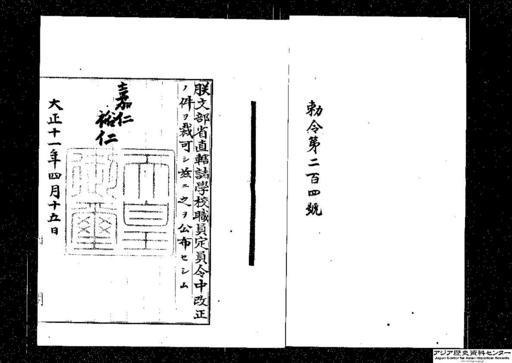 勅令第二百四號
朕文部省直轄諸學校職員定員令中改正
ノ件ヲ裁可シ茲ニ之ヲ公布セシム
嘉仁
裕仁
天皇御璽
大正十一年四月十五日
アジア歴史資料センター
Japan Center for Asian Historical Records